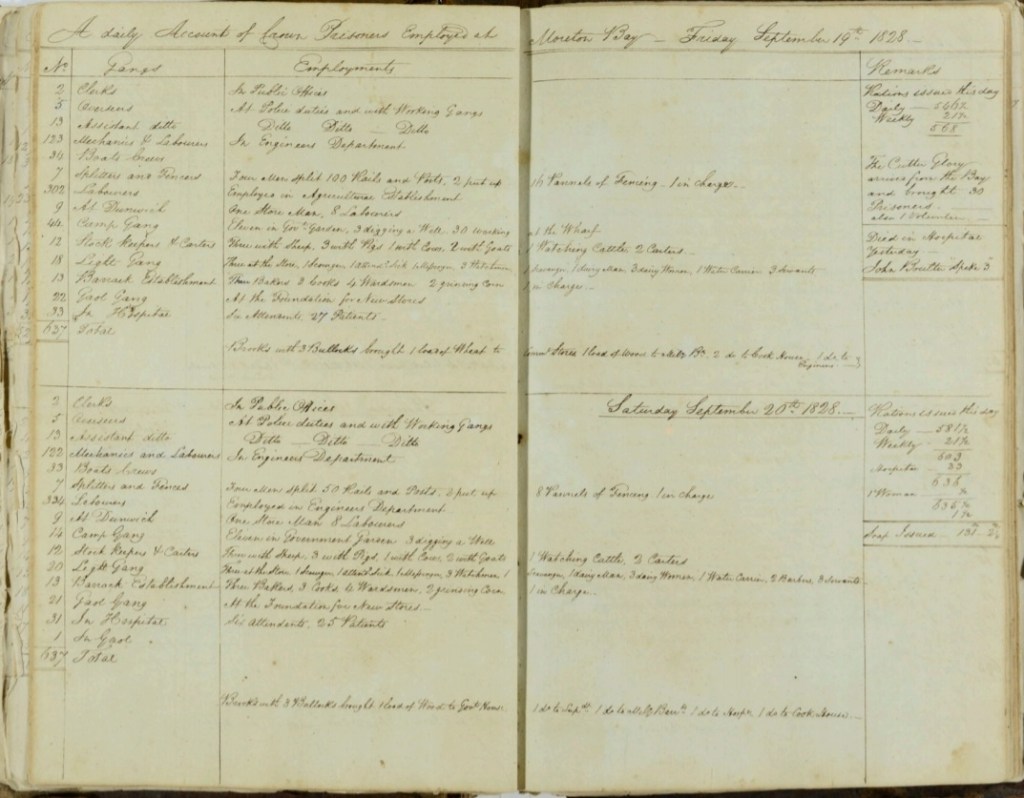 A daily Account of Crown Prisoners Employed at Moreton Bay - Friday September 19th 1828
No Gangs Employments Remarks
2 Clerks In Public Offices
5 Overseers At Police duties and with Working Gangs
13 Assistant ditto Ditto Ditto Ditto
123 Mechanics & Labourers In Engineers Department
34 Boats Crews
7 Splitters and Fencers Four Men split 100 Rails and Posts, 2 put up 16 Pannels of Fencing - 1 in charge
302 Labourers Employed in Agricultural Establishment
9 At Dunwich One Store Man, 8 Labourers
44 Camp Gang Eleven in Govt. Garden, 3 digging a Well 30 working at the Wharf
12 Stock Keepers & Carters Three with Sheep, 3 with Pigs 1 with Cows, 2 with Goats 1 Watching Cattle, 2 Carters
18 Light Gang Three at the Store, 1 1 Messenger, 3 1 1 dairy Man 2 dairy Women, 1 Water Carrier 3 Servants
13 Barrack Establishment Three Bakers 3 Cooks 4 Wardsmen 2 grinding Corn 1 in Charge
22 Gaol Gang At the Foundation for New Stores
33 In Hospital Six Attendants 27 Patients
637 Total
Brooks with 3 Bullocks brought 1 load of Wheat to Stores 1 load of Wood to 2 do to Cook House 1 do to
Engineers
Rations issued this day
Daily
Weekly
568
The Cutter Glory
arrived from the Bay
and brought 30
Prisoners
also 1 Volunteer
Died in Hospital
Yesterday
John
Saturday September 20th 1828
2 Clerks In Public Offices
5 Overseers At Police duties and with Working Gangs
13 Assistant ditto Ditto Ditto Ditto
122 Mechanics and Labourers In Engineers Department
33 Boats Crews
7 Splitters and Fencers Four Men split 50 Rails and Posts, 2 put up 8 Pannels of Fencing 1 in charge
334 Labourers Employed in Engineers Department
9 At Dunwich One Store Man 8 Labourers
14 Camp Gang Eleven in Government Garden 3 digging a Well
12 Stock Keepers & Carters Three with Sheep, 3 with Pigs, 1 with Cows, 2 with Goats 1 Watching Cattle, 2 Carters
20 Light Gang Three at the Store 1 1 Messenger, 3 1 1 dairy Man, 3 dairy Women, 1 Water Carrier, 2 Barbers, 3 Servants
13 Barrack Establishment Three Bakers, 3 Cooks, 4 Wardsmen, 2 grinding Corn 1 in Charge
21 Gaol Gang At the Foundation for New Stores
31 In Hospital Six Attendants 25 Patients
1 In Gaol
637 Total
Brooks with 3 Bullocks brought 1 load of Wood to Govt. House 1 do to 1 do to 1 do to Hosp. 1 do to Cook House
Rations issued this day
Daily 581½
Weekly 21½
603
Hospital 33
636
1 Woman ½
Soap Issued